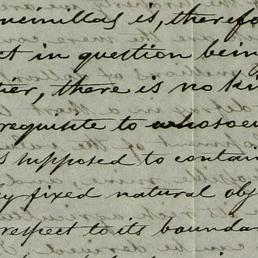 is, therefo
ct in question bein
tier, there is no ki
requisite to whosoev
s supposed to contain
ly fixed natural obj
respect to its bounda